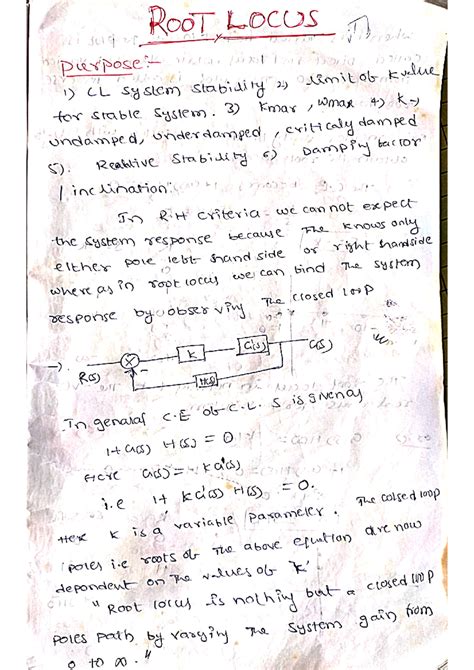 ROOT LOCUS
purpose:-
1) CL System Stability 2) limit of K value
for stable System. 3) Kmax, Wmax 4) K→
undamped, underdamped, critically damped
5). Realtive Stability 6) Damping factor
/inclination.
In R.H Criteria. we can not expect
the system response because The knows only
either pole left hand side or right handside
where as in root locus we can find The system
response by observing The closed loop
→. R(s) K G'(s) C(s)
H(s)
In genaral C.E of C.L.S is given as
1+G(s) H(s) = 0
Here G(s) = KG'(s)
i.e 1+ KG'(s) H(s) = 0.
Here K is a variable parameter. The colsed loop
poles i.e roots of The above equation are now
dependent on The values of 'K'
" Root locus is nothing but a closed loop
poles path by varying The System gain from
0 to ∞."